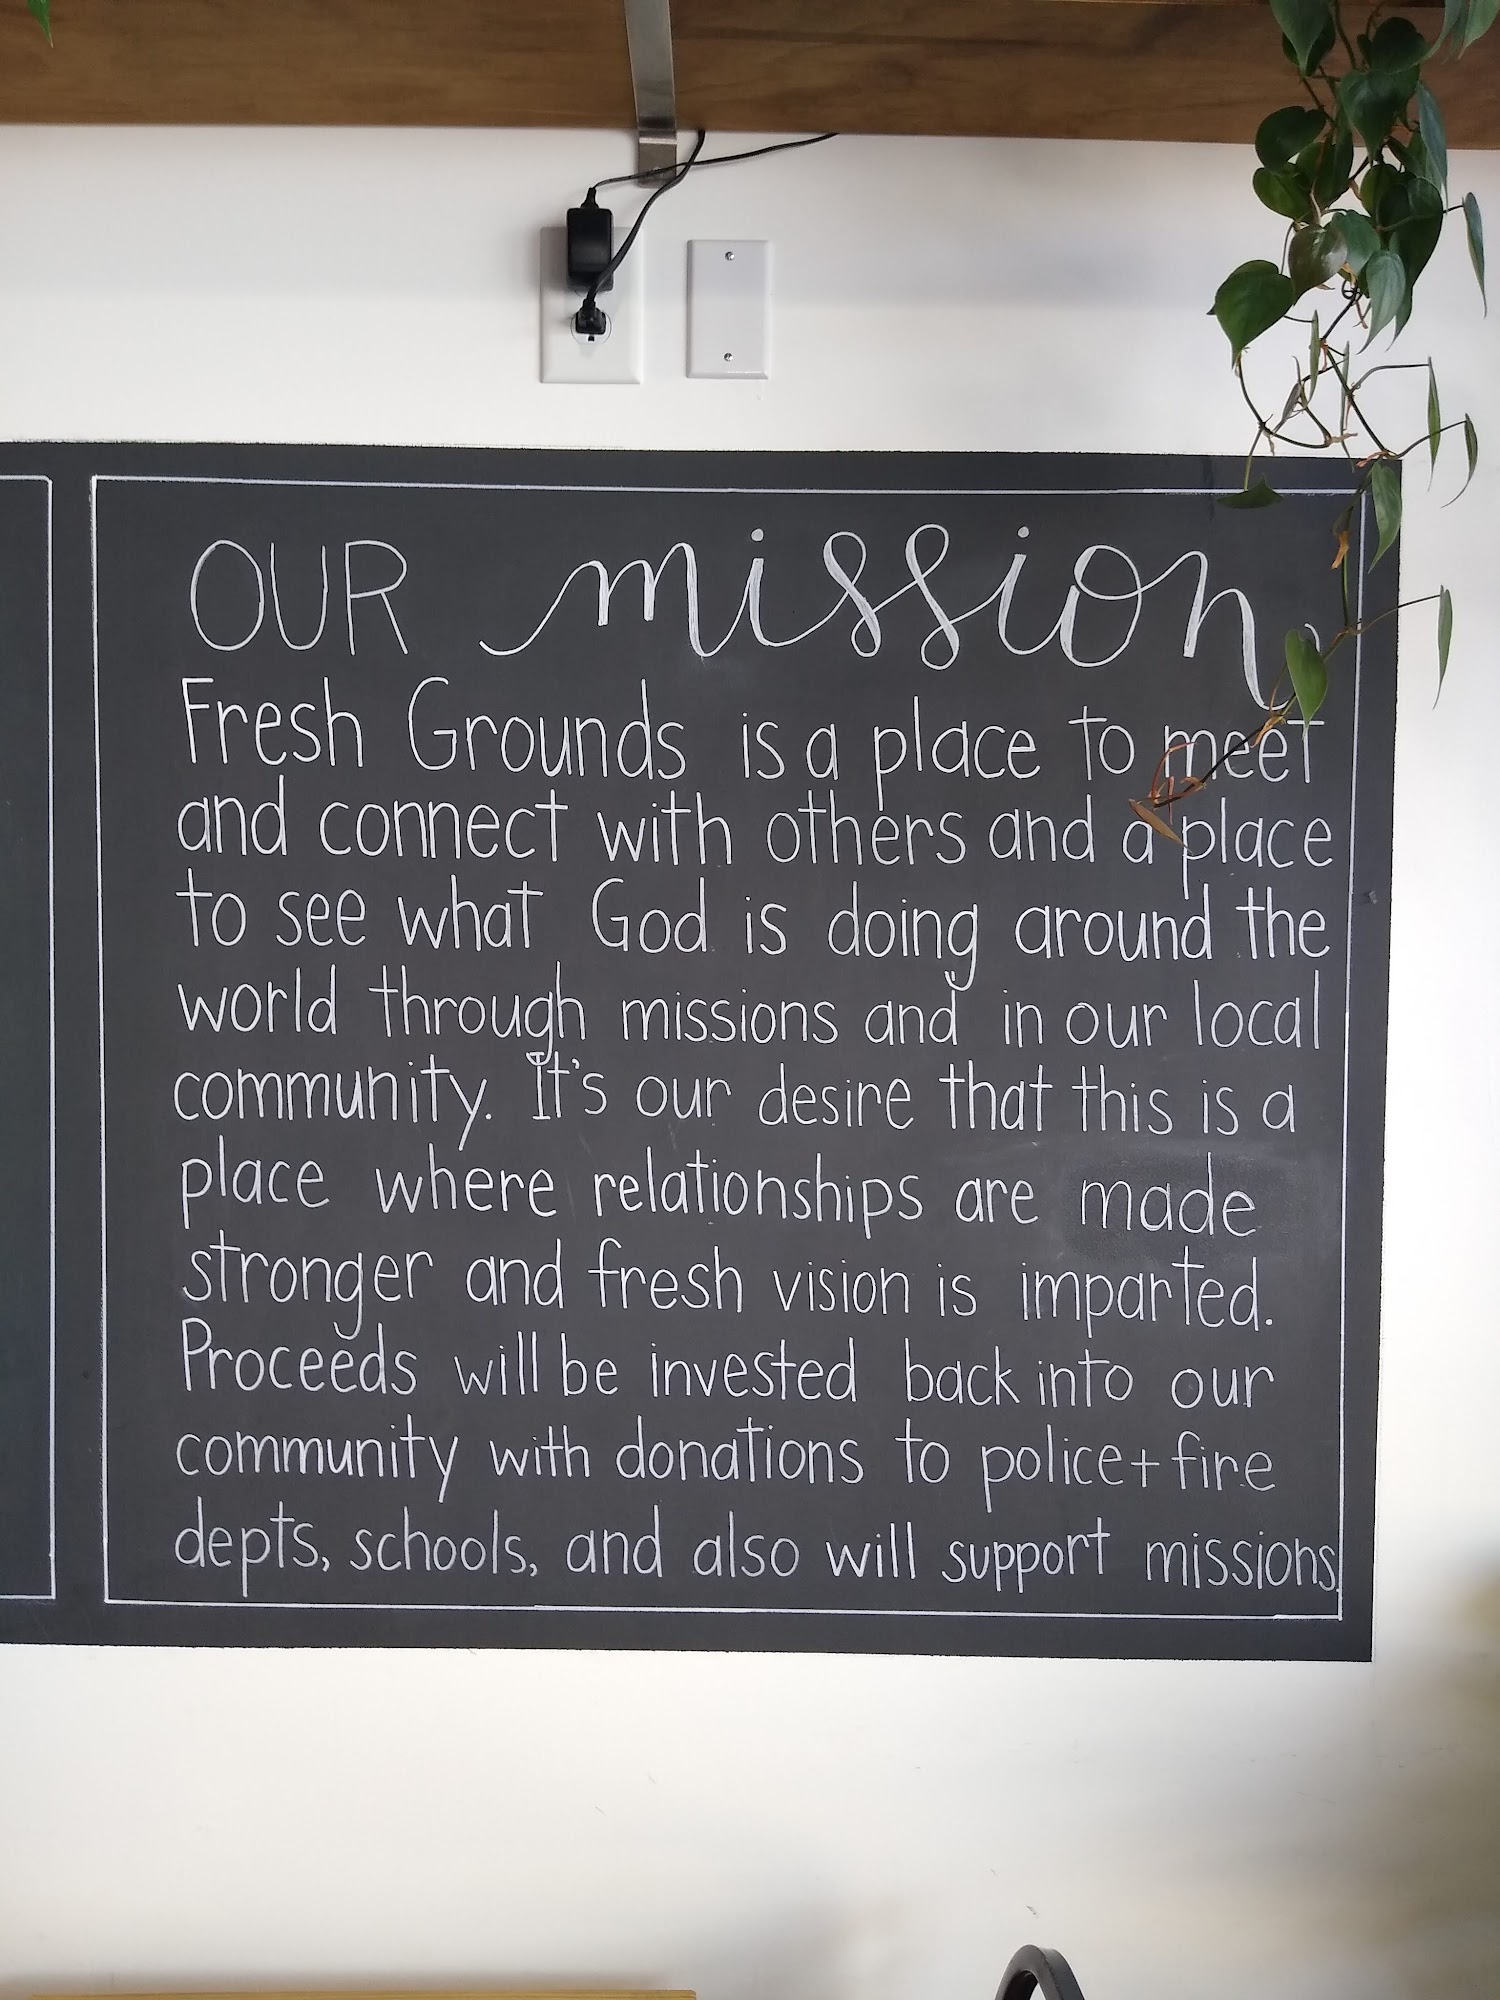 OUR mission
Fresh Grounds is a place to meet
and connect with others and a place
to see what God is doing around the
world through missions and in our local
community. It's our desire that this is a
place where relationships are made
stronger and fresh vision is imparted.
Proceeds will be invested back into our
community with donations to police+fire
depts, schools, and also will support missions.